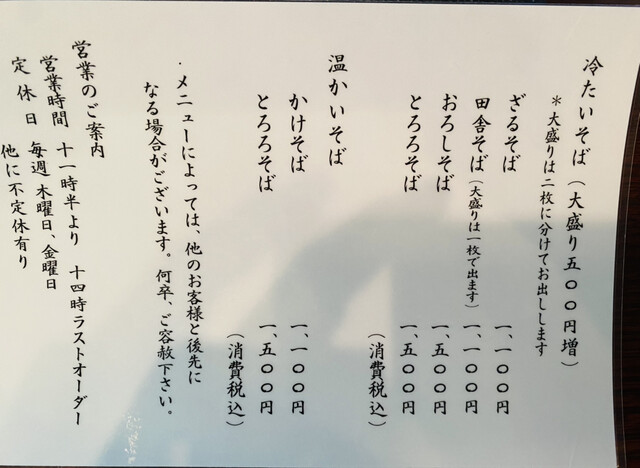 冷たいそば(大盛り五〇〇円増)
＊大盛りは二枚に分けてお出しします
ざるそば 一、一〇〇円
田舎そば(大盛りは一枚で出ます) 一、一〇〇円
おろしそば 一、五〇〇円
とろろそば 一、五〇〇円
(消費税込)
温かいそば
かけそば 一、一〇〇円
とろろそば 一、五〇〇円
(消費税込)
・メニューによっては、他のお客様と後先に
なる場合がございます。何卒、ご容赦下さい。
営業のご案内
営業時間 十一時半より 十四時ラストオーダー
定休日 毎週 木曜日、金曜日
他に不定休有り